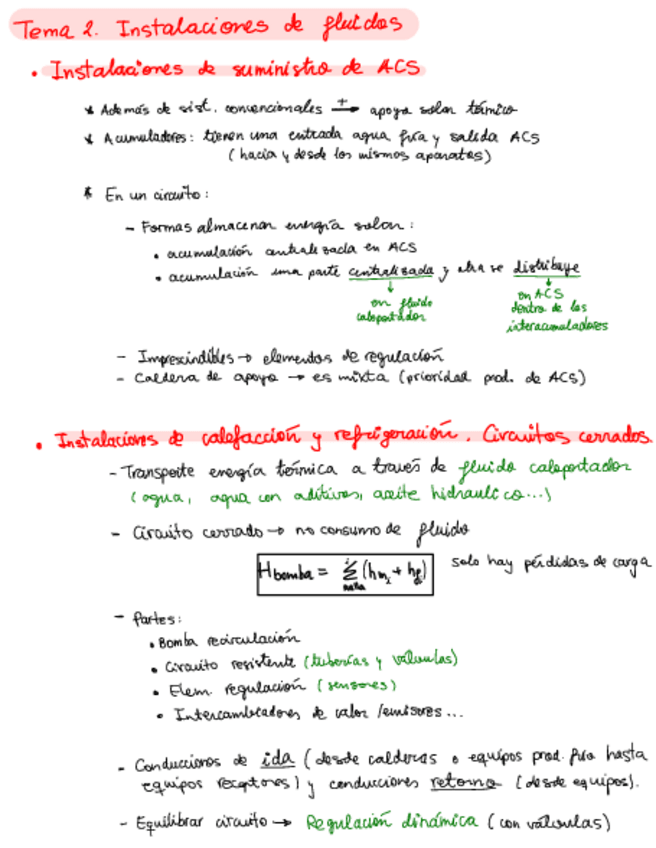 Tema 2. Instalaciones de fluidos
• Instalaciones de suministro de ACS
* Además de sist. convencionales + → apoyo solar térmico
* Acumuladores: tienen una entrada agua fría y salida ACS
(hacia y desde los mismos aparatos)
* En un circuito:
- Formas almacenar energía solar:
• acumulación centralizada en ACS
• acumulación una parte centralizada y otra se distribuye
↓ en fluido caloportador
↓ en ACS dentro de los interacumuladores
- Imprescindibles → elementos de regulación
- Caldera de apoyo → es mixta (prioridad prod. de ACS)
• Instalaciones de calefacción y refrigeración. Circuitos cerrados.
- Transporte energía térmica a través de fluido caloportador
(agua, agua con aditivos, aceite hidraulico...)
- Circuito cerrado → no consumo de fluido
H bomba = Σ (hm + hf) solo hay pérdidas de carga
- Partes:
• Bomba recirculación
• Circuito resistente (tuberías y válvulas)
• Elem. regulación (sensores)
• Intercambiadores de calor /emisores...
- Conducciones de ida (desde calderas o equipos prod. frío hasta
equipos receptores) y conducciones retorno (desde equipos).
- Equilibrar circuito → Regulación dinámica (con válvulas)